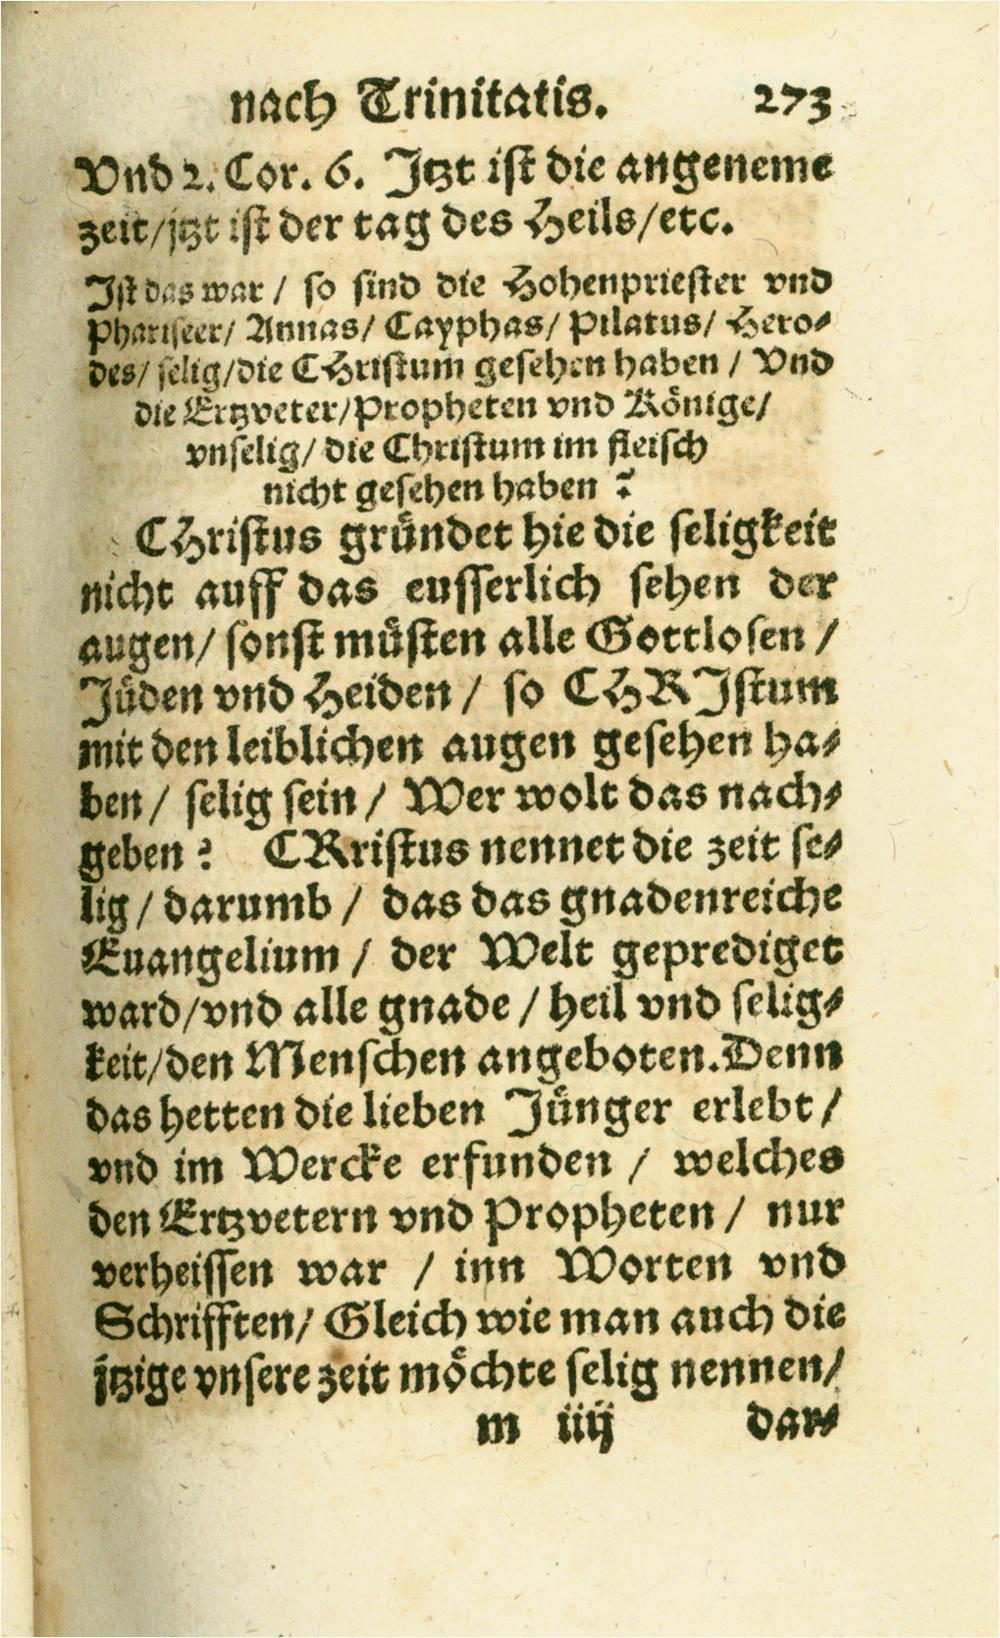 nach Trinitatis. 273
Vnd 2. Cor. 6. Jtzt ist die angeneme
zeit/jtzt ist der tag des Heils/etc.
Jst das war / so sind die Hohenpriester vnd
Phariseer/ Annas/ Cayphas/ Pilatus/ Hero⸗
des/ selig/die CHristum gesehen haben / Vnd
die Ertzveter/Propheten vnd Könige/
vnselig/ die Christum im fleisch
nicht gesehen haben ?
CHristus gründet hie die seligkeit
nicht auff das eusserlich sehen der
augen/ sonst müsten alle Gottlosen /
Jüden vnd Heiden / so CHRJstum
mit den leiblichen augen gesehen ha⸗
ben / selig sein / Wer wolt das nach⸗
geben ? CRristus nennet die zeit se⸗
lig / darumb / das das gnadenreiche
Euangelium / der Welt geprediget
ward/vnd alle gnade / heil vnd selig⸗
keit/den Menschen angeboten. Denn
das hetten die lieben Jünger erlebt /
vnd im Wercke erfunden / welches
den Ertzvetern vnd Propheten / nur
verheissen war / inn Worten vnd
Schrifften/ Gleich wie man auch die
jtzige vnsere zeit möchte selig nennen/
m iiij dar⸗